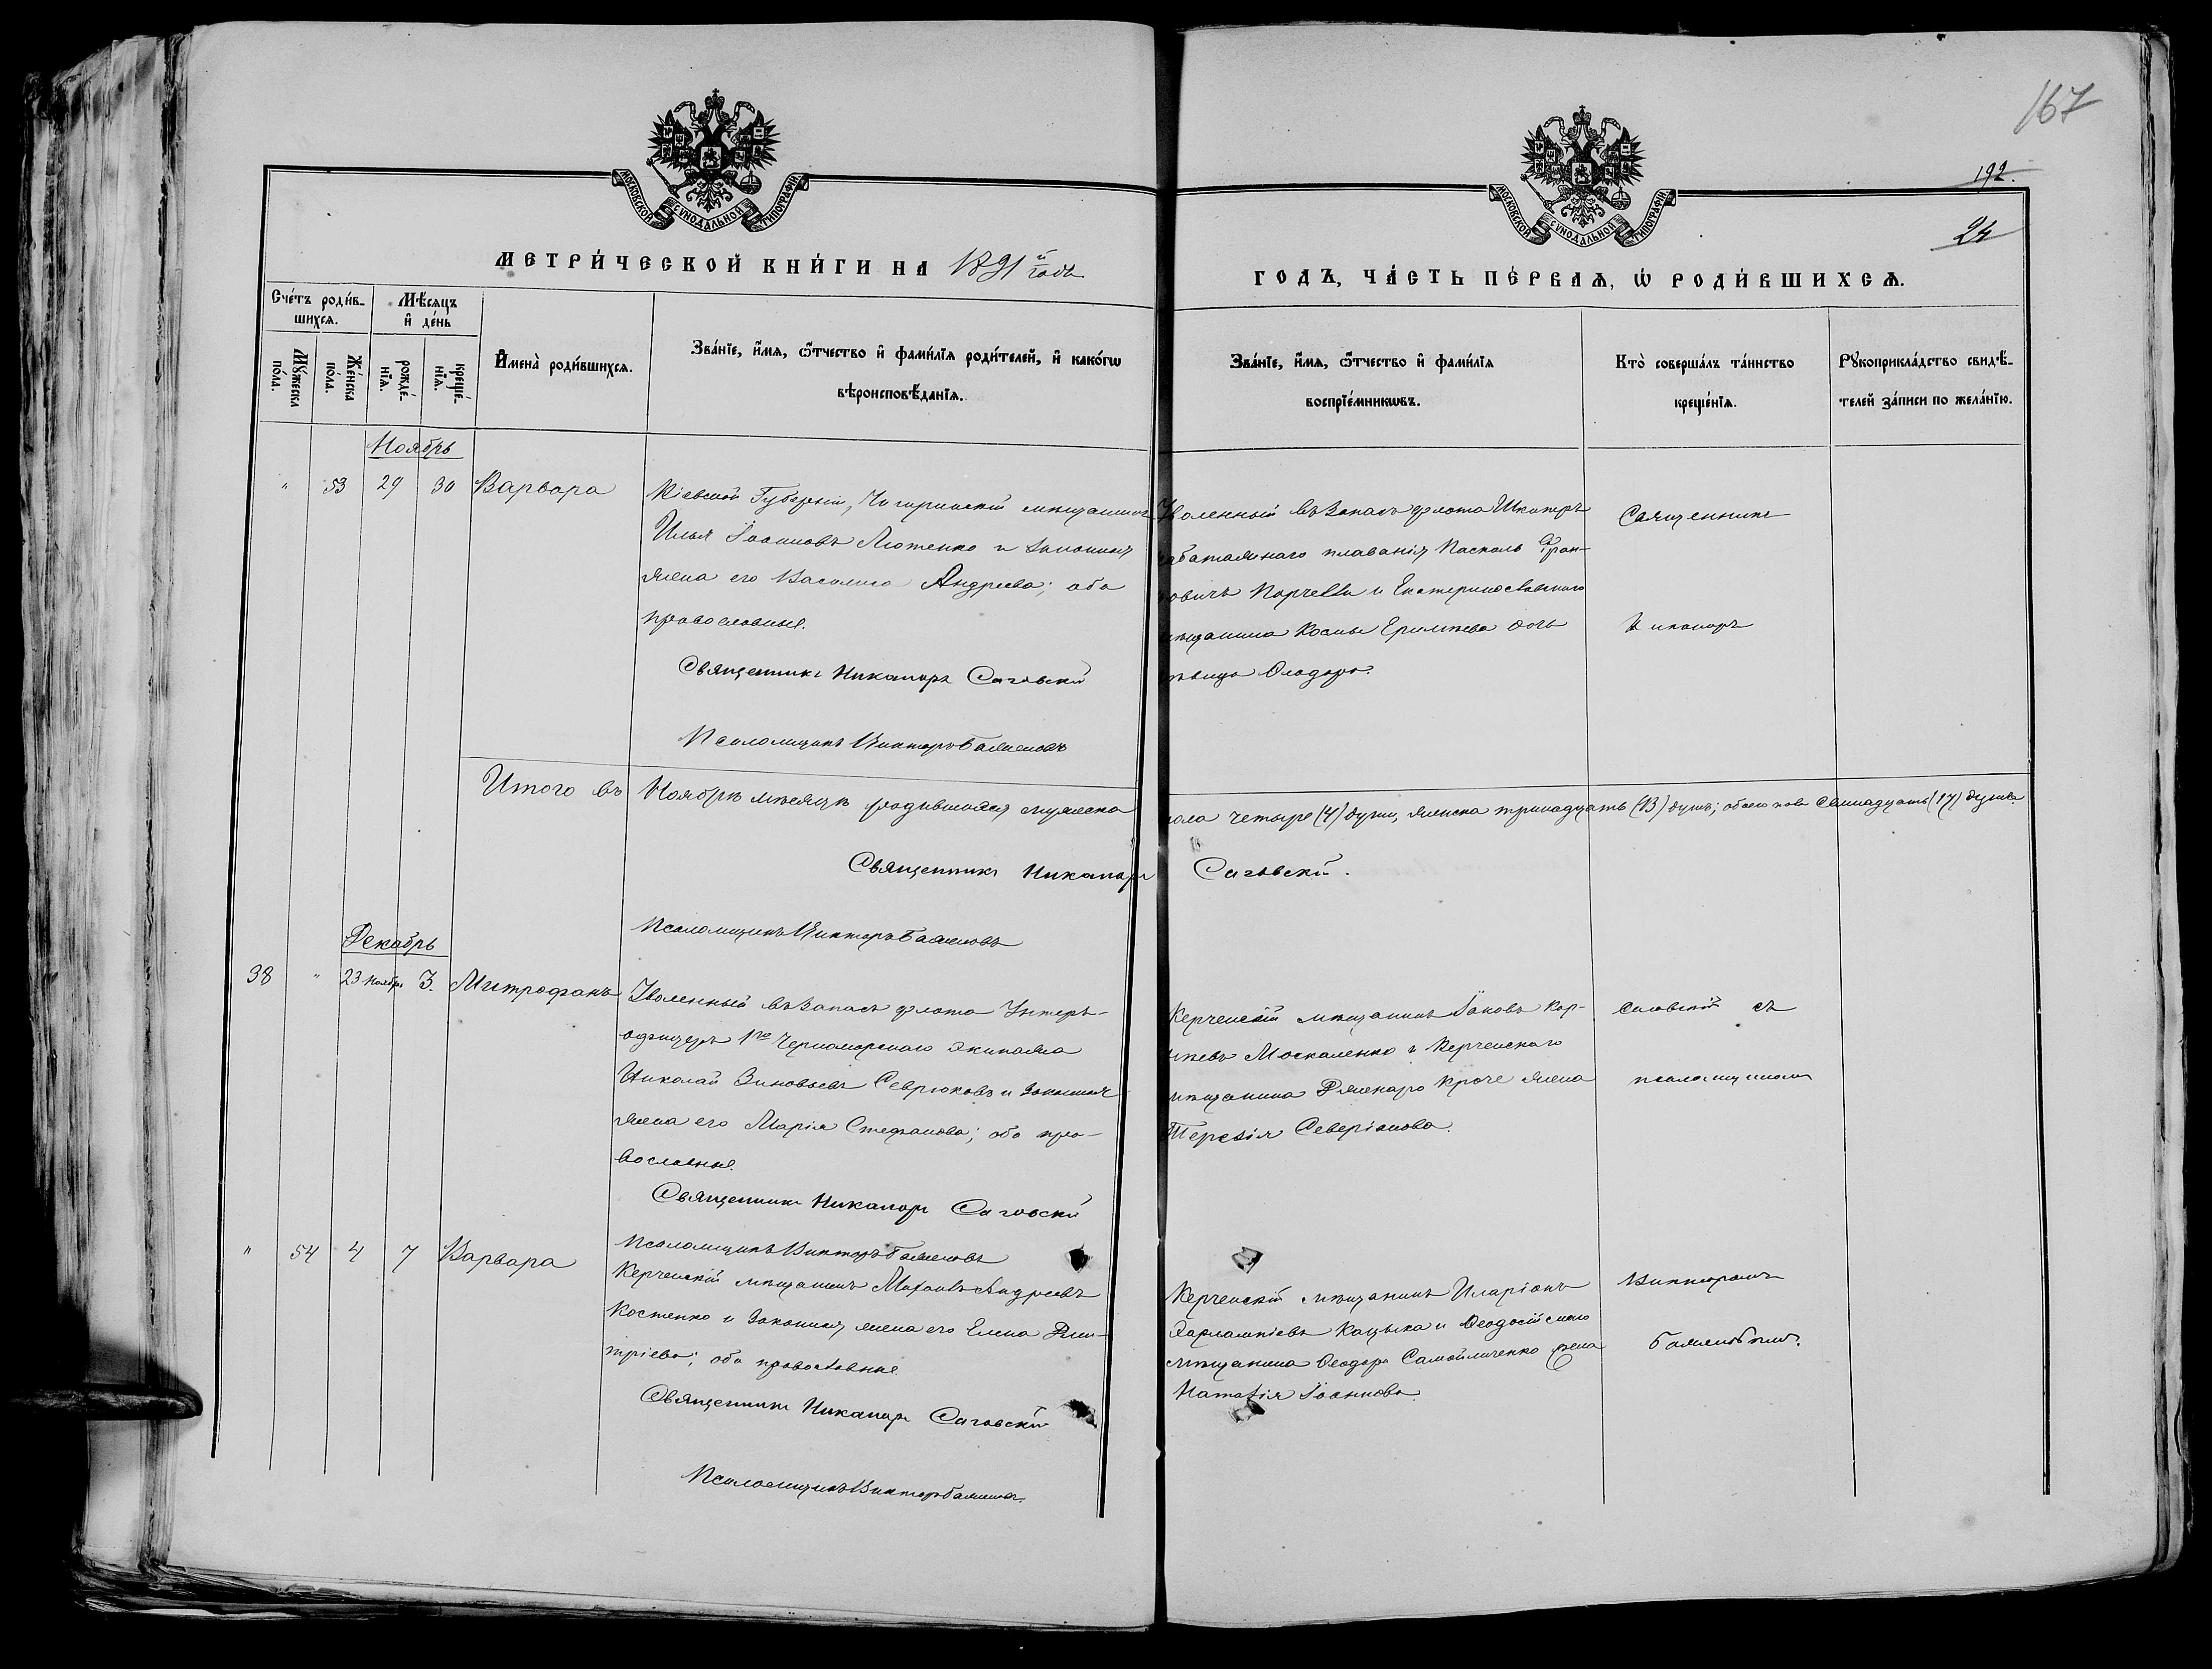 167
192.
24
МОСКОВСКОЙ СѴНОДАЛЬНОЙ ТИПОГРАФІИ
МОСКОВСКОЙ СѴНОДАЛЬНОЙ ТИПОГРАФІИ
МЕТРИ́ЧЕСКОЙ КНИ́ГИ НА 1891й годъ
ГОДЪ, ЧА́СТЬ ПЕ́РВАѦ, Ѡ҆ РОДИ́ВШИХСѦ.
Сче́тъ роди́в-
шихсѧ.
Мꙋ́жеска по́ла.
Же́нска по́ла.
Мѣ́сяцъ
и҆ де́нь
рожде́-
нїѧ.
креще́-
нїѧ.
И҆мена̀ роди́вшихсѧ.
Зва́нїе, и҆́мѧ, ѻ҆́тчество и҆ фами́лїѧ роди́телей, и҆ како́гѡ
вѣроисповѣ́данїѧ.
Зва́нїе, и҆́мѧ, ѻ҆́тчество и҆ фами́лїѧ
воспрїе́мникѡвъ.
Кто̀ соверша́лъ та́инство
креще́нїѧ.
Рꙋкоприкла́дство свидѣ́-
телей за́писи по жела́нїю.
Ноябрь
" 53 29 30 Варвара
Кіевской Губерніи, Чигиринскій мѣщанинъ
Илья Іоанновъ Лютенко и законная
жена его Василиса Андреева; оба
православные.
Священникъ Никаноръ Саговскій
Псаломщикъ Викторъ Баженовъ
Уволенный въ запасъ флота Шкиперъ
каботажнаго плаванія Пасколь
и Екатеринославскаго
мѣщанина Космы дочь
дѣвица Ѳеодора.
Священникъ
Никаноръ
Итого въ Ноябрѣ мѣсяцѣ родившихся мужеска
пола четыре (4) души, женска тринадцать (13) душъ; обоего пола семнадцать (17) душъ.
Священникъ Никаноръ Саговскій.
Псаломщикъ Викторъ Баженовъ
Декабрь
38 " 23 Ноября 3. Митрофанъ
Уволенный въ запасъ флота Унтеръ-
офицеръ 1го Черноморскаго экипажа
Николай Зиновьевъ Севрюковъ и законная
жена его Марія Стефанова; оба пра-
вославные.
Священникъ Никаноръ Саговскій
Псаломщикъ Викторъ Баженовъ
Керченскій мѣщанинъ Іаковъ Кор-
нѣевъ Москаленко и Керченскаго
мѣщанина Дженаро Кроче жена
Терезія Северіанова.
Саговскій съ
псаломщикомъ
" 54 4 7 Варвара
Керченскій мѣщанинъ Михаилъ Андреевъ
Костенко и законная жена его Елена Дими-
тріева; оба православные.
Священникъ Никаноръ Саговскій
Псаломщикъ Викторъ Баженовъ.
Керченскій мѣщанинъ Иларіонъ
Харлампіевъ Кацыка и Ѳеодосійскаго
мѣщанина Ѳеодора Самойличенко жена
Наталія Іоаннова.
Викторомъ
Баженовымъ.